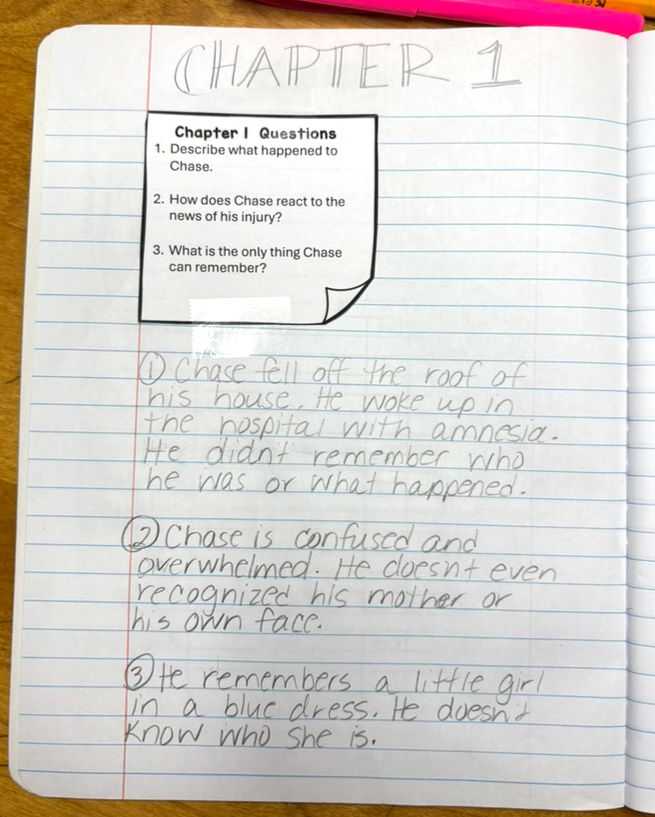 CHAPTER 1
Chapter 1 Questions
1. Describe what happened to
Chase.
2. How does Chase react to the
news of his injury?
3. What is the only thing Chase
can remember?
① Chase fell off the roof of
his house. He woke up in
the hospital with amnesia.
He didn't remember who
he was or what happened.
② Chase is confused and
overwhelmed. He doesn't even
recognized his mother or
his own face.
③ He remembers a little girl
in a blue dress. He doesn't
know who she is.